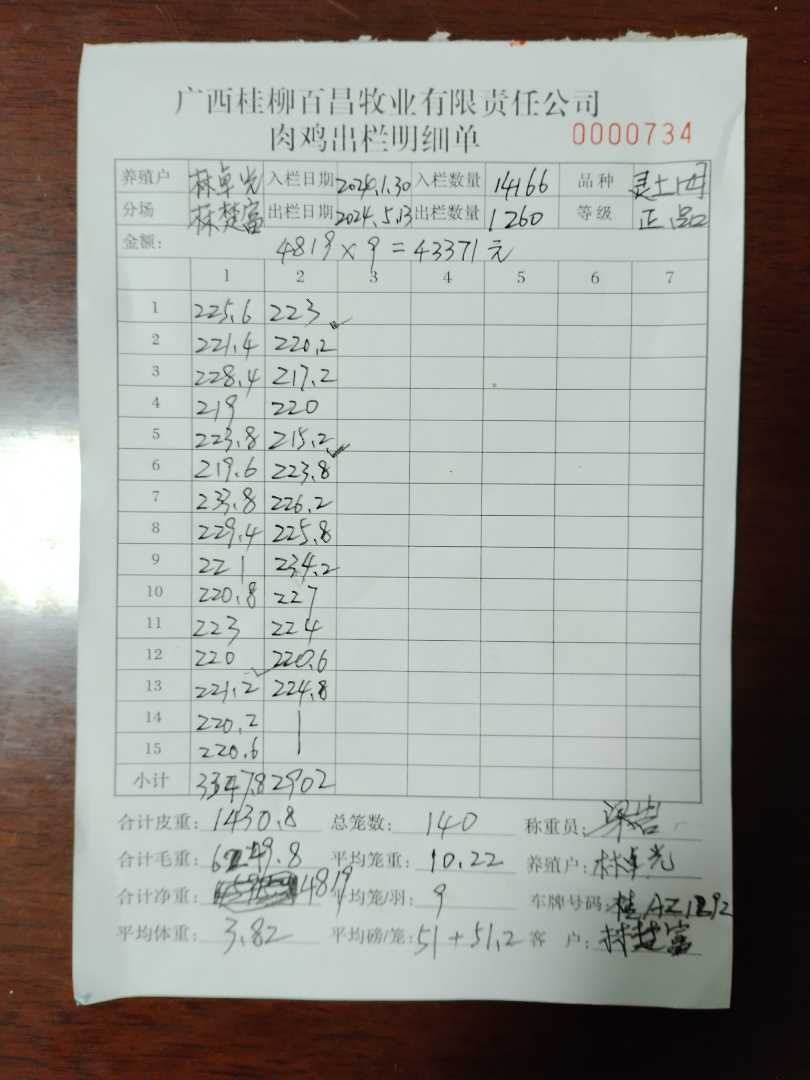 广西桂柳百昌牧业有限责任公司
肉鸡出栏明细单 0000734
养殖户 林卓光 入栏日期 2024.1.30 入栏数量 14166 品种 灵土
分场 林楚富 出栏日期 2024.5.13 出栏数量 1260 等级 正品
金额: 4819×9=43371元
1 2 3 4 5 6 7
1 225.6 223
2 221.4 220.2
3 228.4 217.2
4 219 220
5 223.8 215.2
6 219.6 223.8
7 233.8 226.2
8 229.4 225.8
9 221 234.2
10 220.8 227
11 223 224
12 220 220.6
13 221.2 224.8
14 220.2
15 220.6
小计 3347.8 2902
合计皮重: 1430.8 总笼数: 140 称重员:
合计毛重: 6249.8 平均笼重: 10.22 养殖户: 林卓光
合计净重: 4819 平均笼/羽: 9 车牌号码: 桂AZ1292
平均体重: 3.82 平均磅/笼: 51+51.2 客户: 林楚富